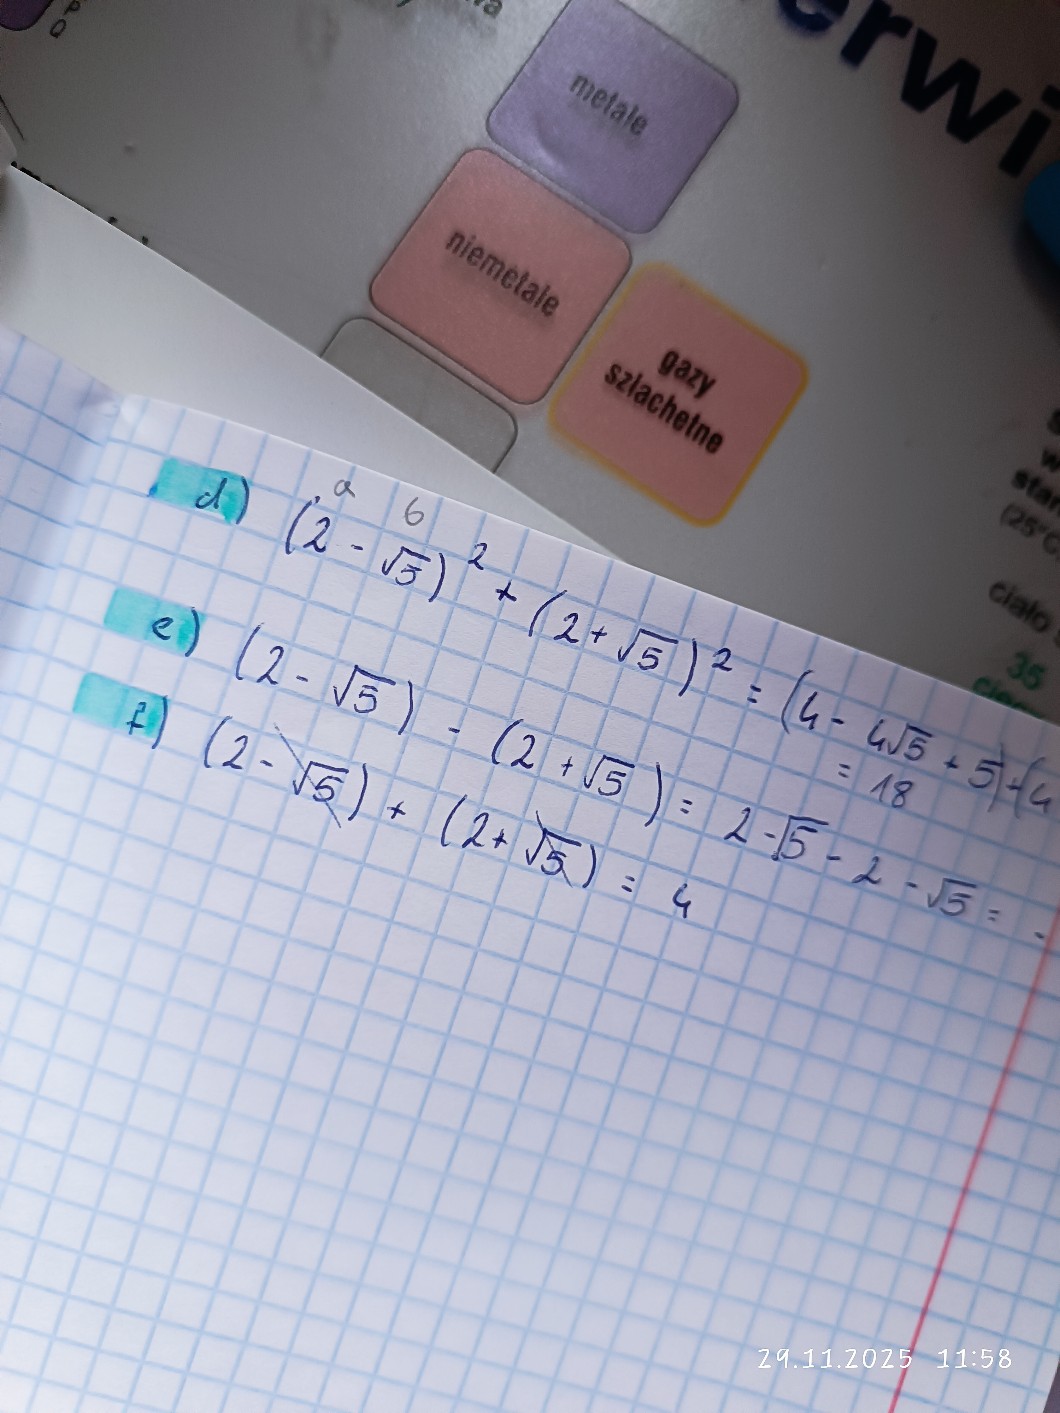 metale
niemetale
gazy
szlachetne
erwi
ciało
35
(25°C
d) (2 - √5)² + (2 + √5)² = (4 - 4√5 + 5) + (4
a b
= 18
e) (2 - √5) - (2 + √5) = 2 - √5 - 2 - √5 = -
f) (2 - √5) + (2 + √5) = 4
29.11.2025 11:58